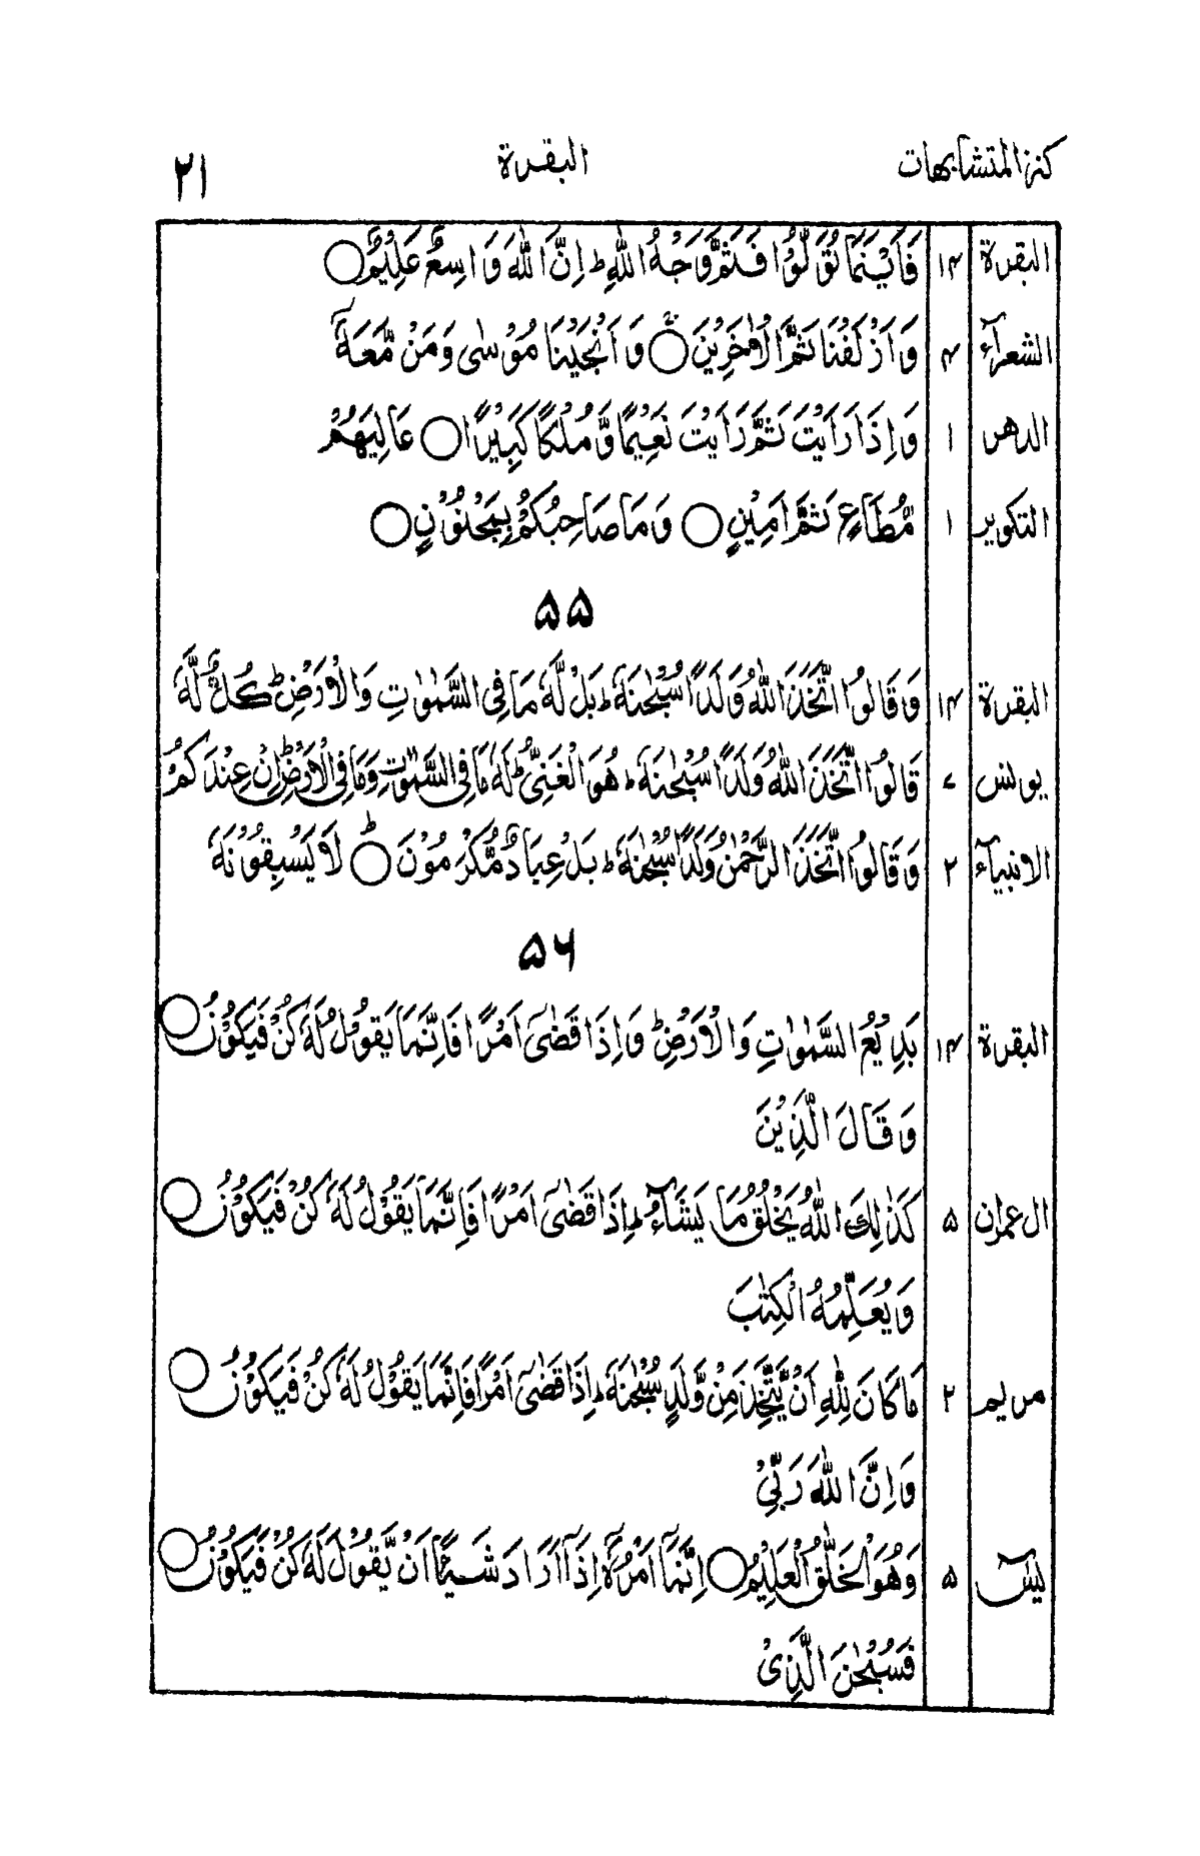 كنز المتشابهات البقرة ٢١
البقرة ١٤ فَاَيْنَمَا تُوَلُّوْا فَثَمَّ وَجْهُ اللّٰهِ ؕ اِنَّ اللّٰهَ وَاسِعٌ عَلِيْمٌ ○
الشعرآء ٤ وَاَزْلَفْنَا ثَمَّ الْاٰخَرِيْنَ ○ وَاَنْجَيْنَا مُوْسٰى وَمَنْ مَّعَهٗٓ
الدهر ١ وَاِذَا رَاَيْتَ ثَمَّ رَاَيْتَ نَعِيْمًا وَّمُلْكًا كَبِيْرًا ○ عَالِيَهُمْ
التكوير ١ مُّطَاعٍ ثَمَّ اَمِيْنٍ ○ وَمَا صَاحِبُكُمْ بِمَجْنُوْنٍ ○
۵۵
البقرة ١٤ وَقَالُوا اتَّخَذَ اللّٰهُ وَلَدًا سُبْحٰنَهٗ ؕ بَلْ لَّهٗ مَا فِى السَّمٰوٰتِ وَالْاَرْضِ ؕ كُلٌّ لَّهٗ
يونس ٧ قَالُوا اتَّخَذَ اللّٰهُ وَلَدًا سُبْحٰنَهٗ ؕ هُوَ الْغَنِىُّ ؕ لَهٗ مَا فِى السَّمٰوٰتِ وَمَا فِى الْاَرْضِ ؕ اِنْ عِنْدَكُمْ
الانبيآء ٢ وَقَالُوا اتَّخَذَ الرَّحْمٰنُ وَلَدًا سُبْحٰنَهٗ ؕ بَلْ عِبَادٌ مُّكْرَمُوْنَ ○ لَا يَسْبِقُوْنَهٗ
۵٦
البقرة ١٤ بَدِيْعُ السَّمٰوٰتِ وَالْاَرْضِ ؕ وَاِذَا قَضٰٓى اَمْرًا فَاِنَّمَا يَقُوْلُ لَهٗ كُنْ فَيَكُوْنُ ○
وَقَالَ الَّذِيْنَ
ال عمرٰن ۵ كَذٰلِكَ اللّٰهُ يَخْلُقُ مَا يَشَآءُ ؕ اِذَا قَضٰٓى اَمْرًا فَاِنَّمَا يَقُوْلُ لَهٗ كُنْ فَيَكُوْنُ ○
وَيُعَلِّمُهُ الْكِتٰبَ
مريم ٢ مَا كَانَ لِلّٰهِ اَنْ يَّتَّخِذَ مِنْ وَّلَدٍ سُبْحٰنَهٗ ؕ اِذَا قَضٰٓى اَمْرًا فَاِنَّمَا يَقُوْلُ لَهٗ كُنْ فَيَكُوْنُ ○
وَاِنَّ اللّٰهَ رَبِّىْ
يٰسٓ ۵ وَهُوَ الْخَلّٰقُ الْعَلِيْمُ ○ اِنَّمَآ اَمْرُهٗٓ اِذَآ اَرَادَ شَيْـًٔا اَنْ يَّقُوْلَ لَهٗ كُنْ فَيَكُوْنُ ○
فَسُبْحٰنَ الَّذِىْ